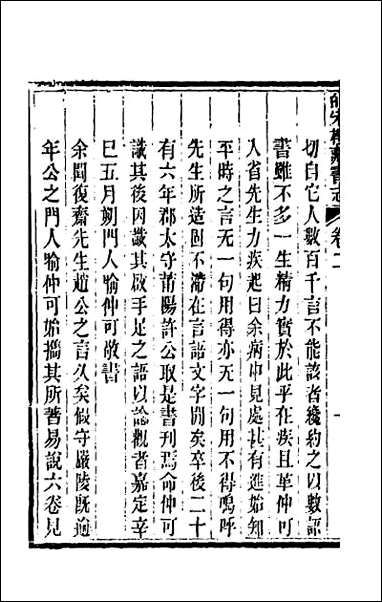 皕宋樓藏書志 卷二
切自它人數百千言不能該者纔約之以數語
書雖不多一生精力實於此乎在疾且革仲可
入省先生力疾起曰余病中見處甚有進始知
平時之言无一句用得亦无一句用不得嗚呼
先生所造固不滯在言語文字閒矣卒後二十
有六年郡太守莆陽許公取是書刊焉命仲可
識其後因識其啟手足之語以諗觀者嘉定辛
巳五月朔門人喻仲可敬書
余聞復齋先生趙公之言久矣假守嚴陵旣逾
年公之門人喻仲可始攜其所著易說六卷見